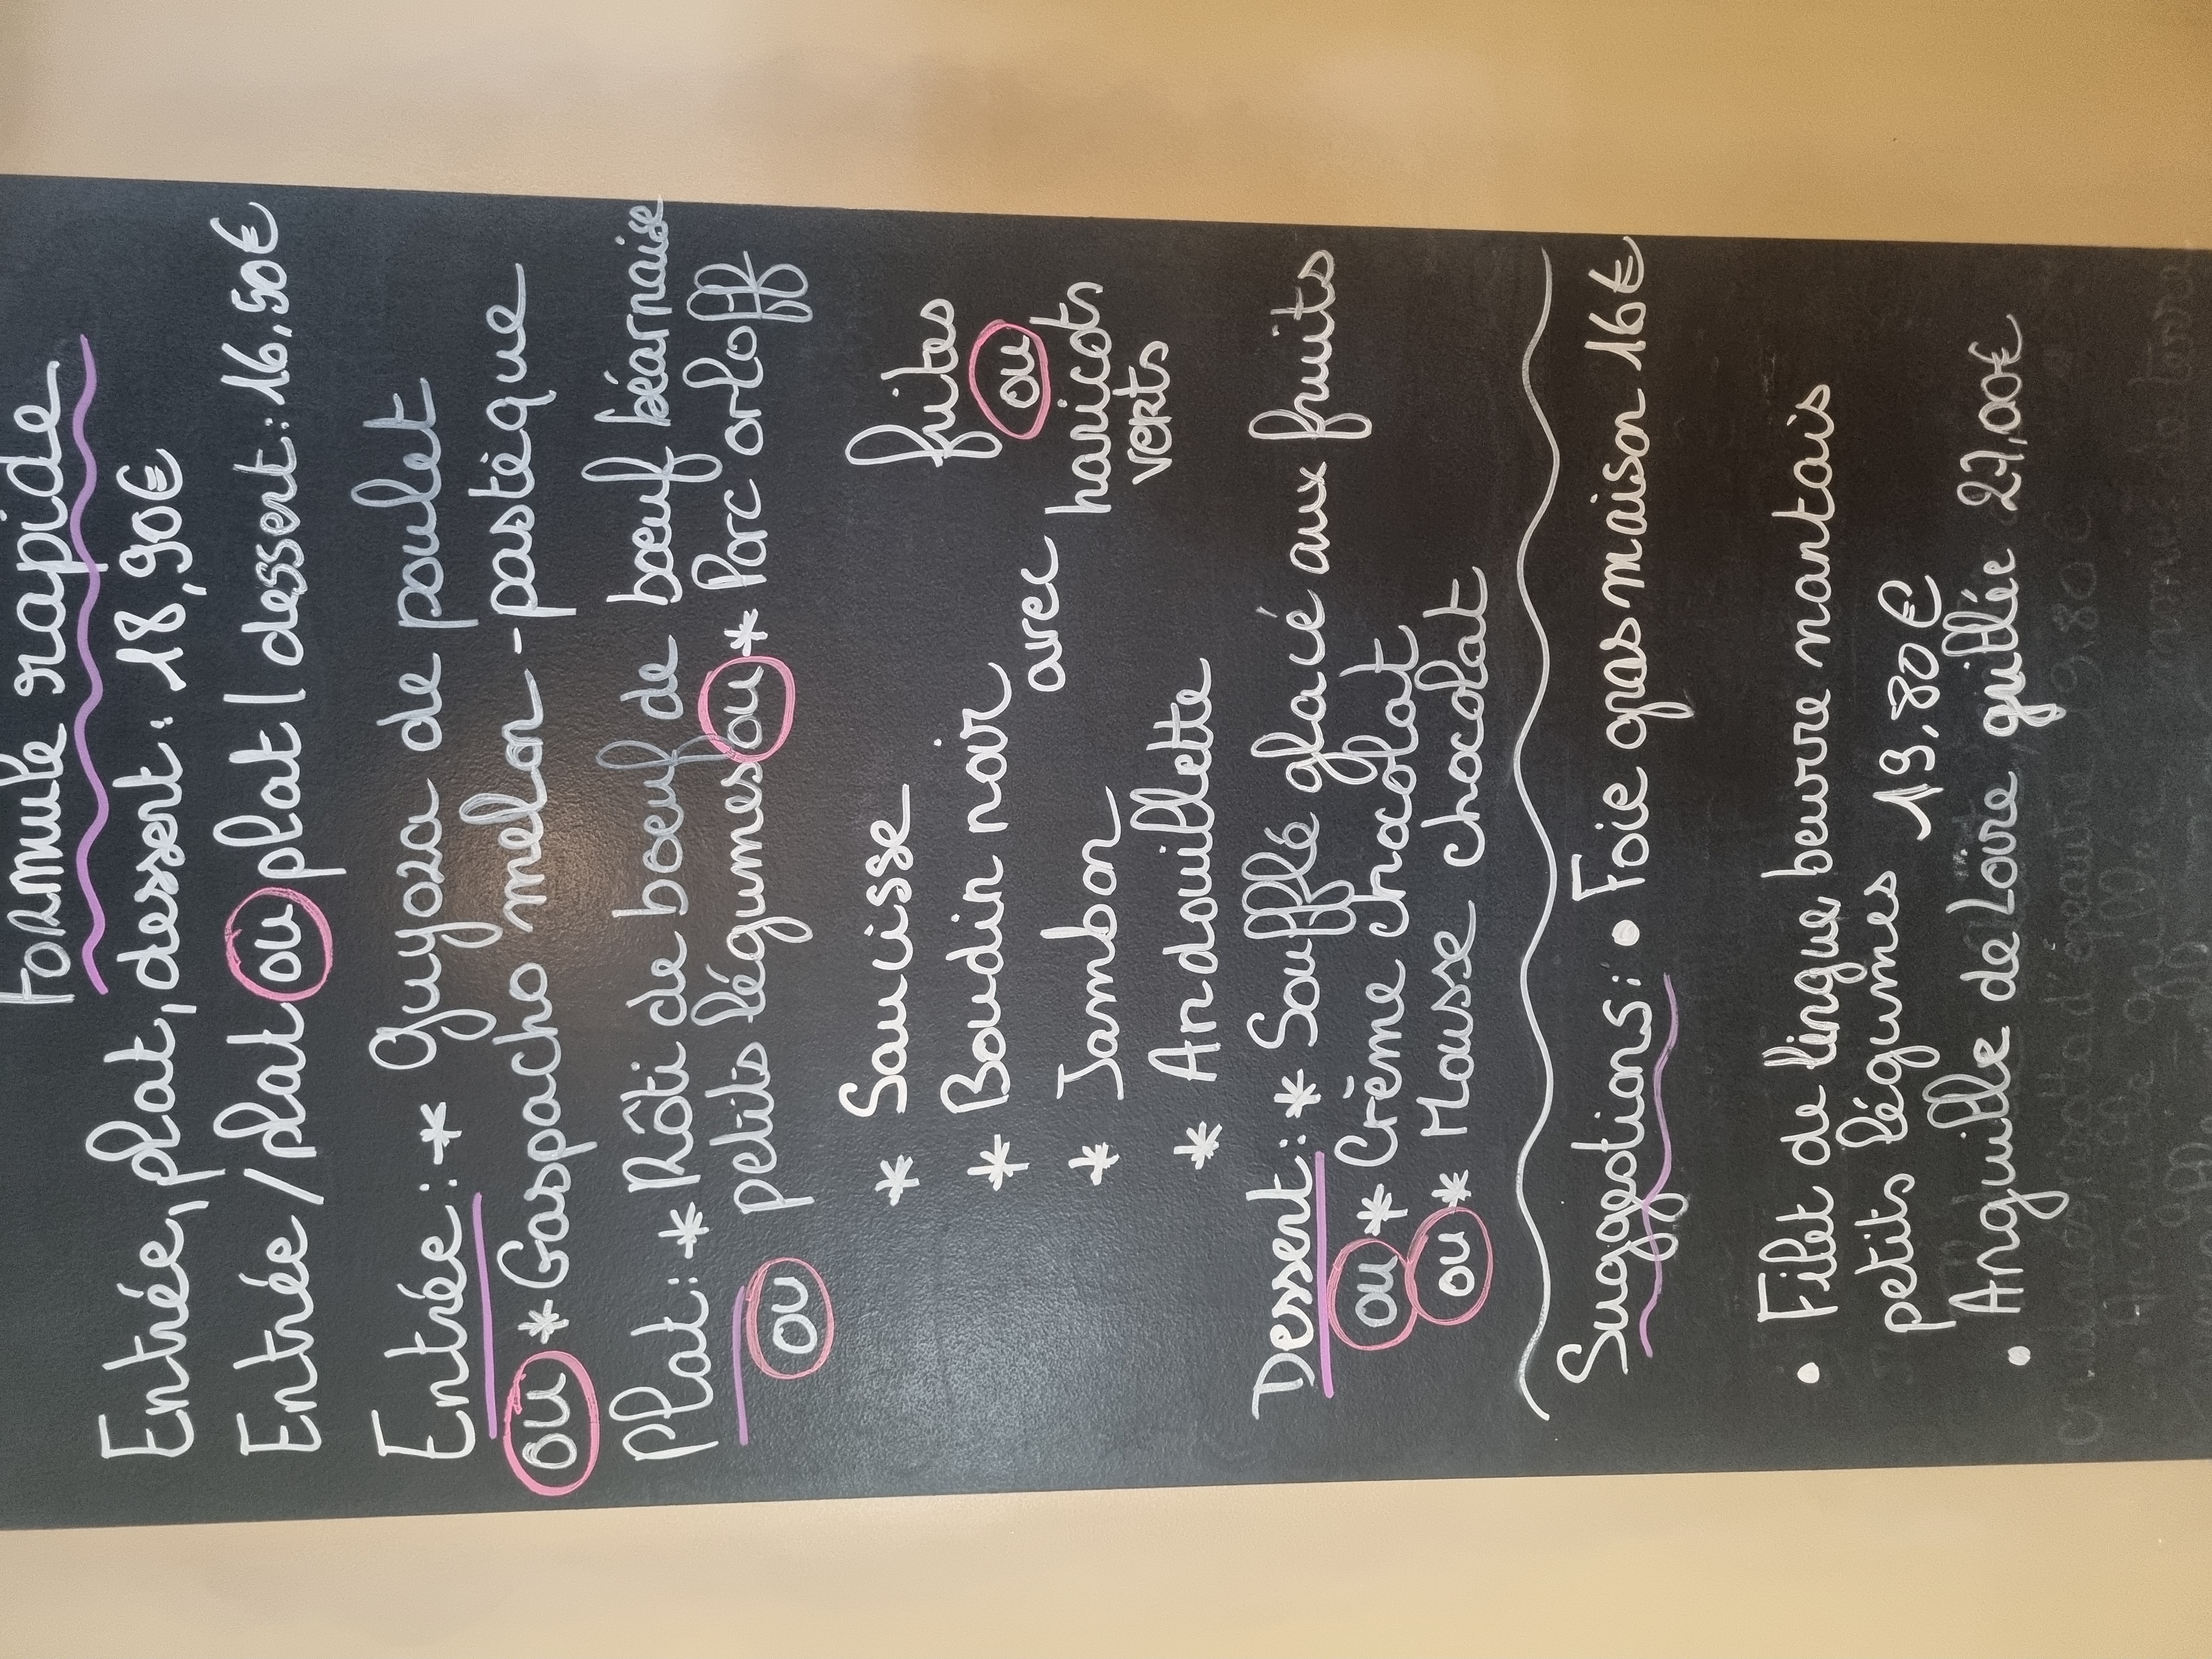 Formule rapide
Entrée, plat, dessert : 18,90€
Entrée / plat ou plat / dessert : 16,50€
Entrée : * Guyoza de poulet
ou * Gaspacho melon - pastèque
Plat : * Rôti de boeuf de boeuf béarnaise
petits légumes ou * Porc orloff
ou
* Saucisse
* Boudin noir
* Jambon
* Andouillette
avec
frites
ou
haricots
verts
Dessert : * Soufflé glacé aux fruits
ou * Crème chocolat
ou * Mousse chocolat
Suggestions : • Foie gras maison 16€
• Filet de lingue beurre nantais
petits légumes 19,80€
• Anguille de Loire grillée 27,00€